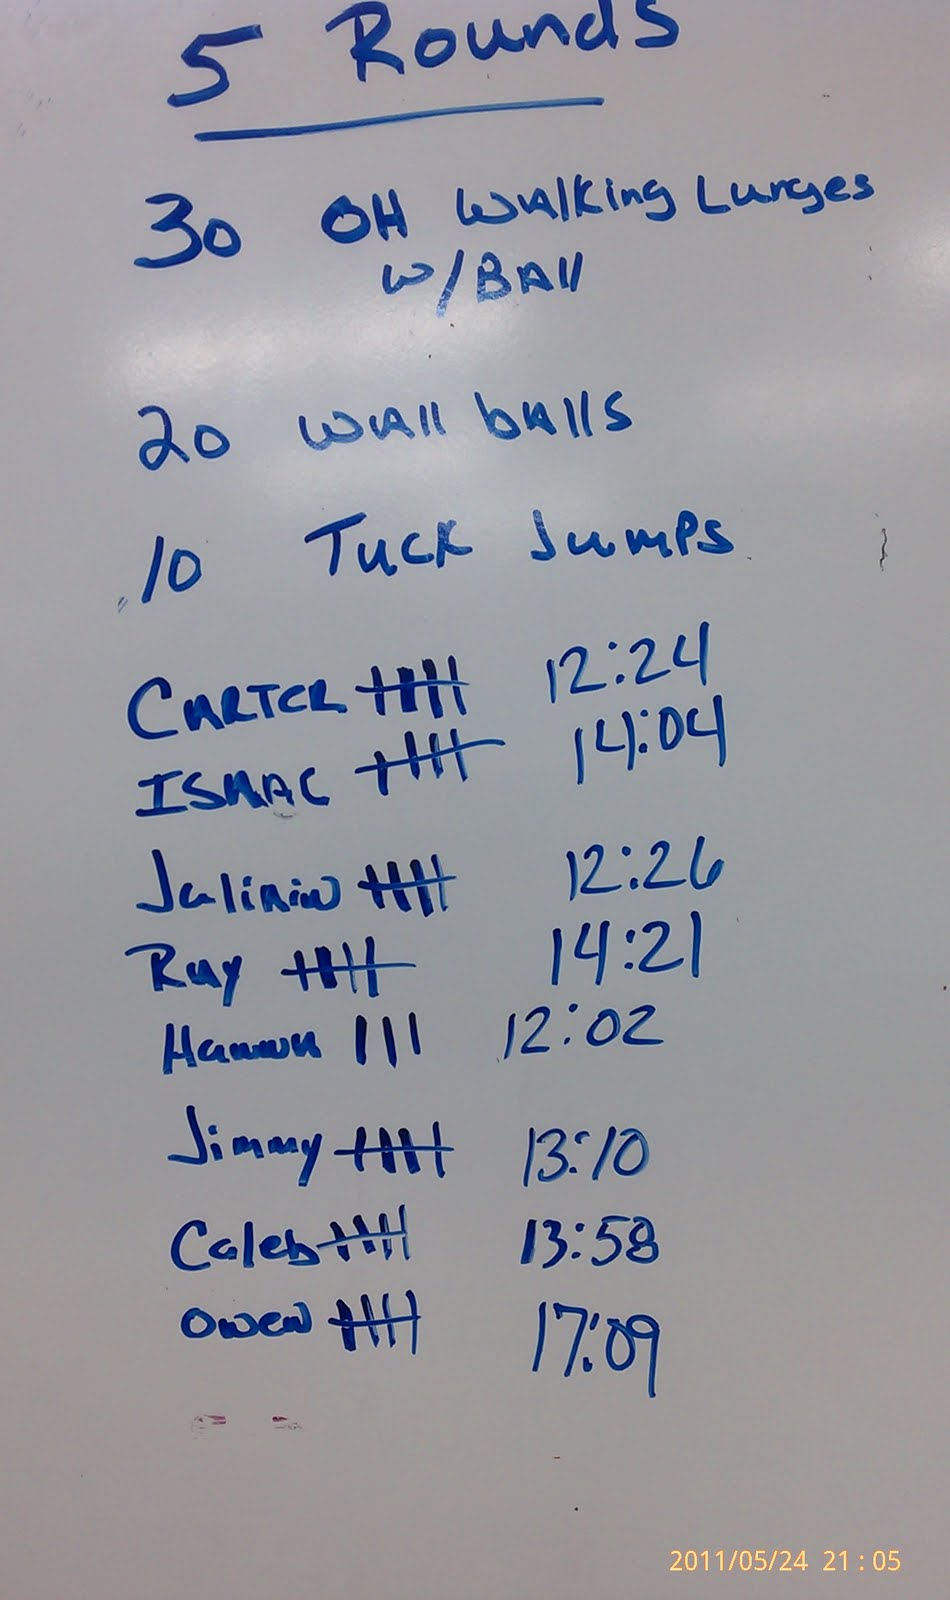 5 Rounds
30 OH Walking Lunges
w/BAll
20 WAll bAllS
10 TUCK JumPS
CARTER 12:24
ISAAC 14:04
12:26
Ray 14:21
Hannah III 12:02
Jimmy 13:10
Caleb 13:58
Owen 17:09
2011/05/24 21:05